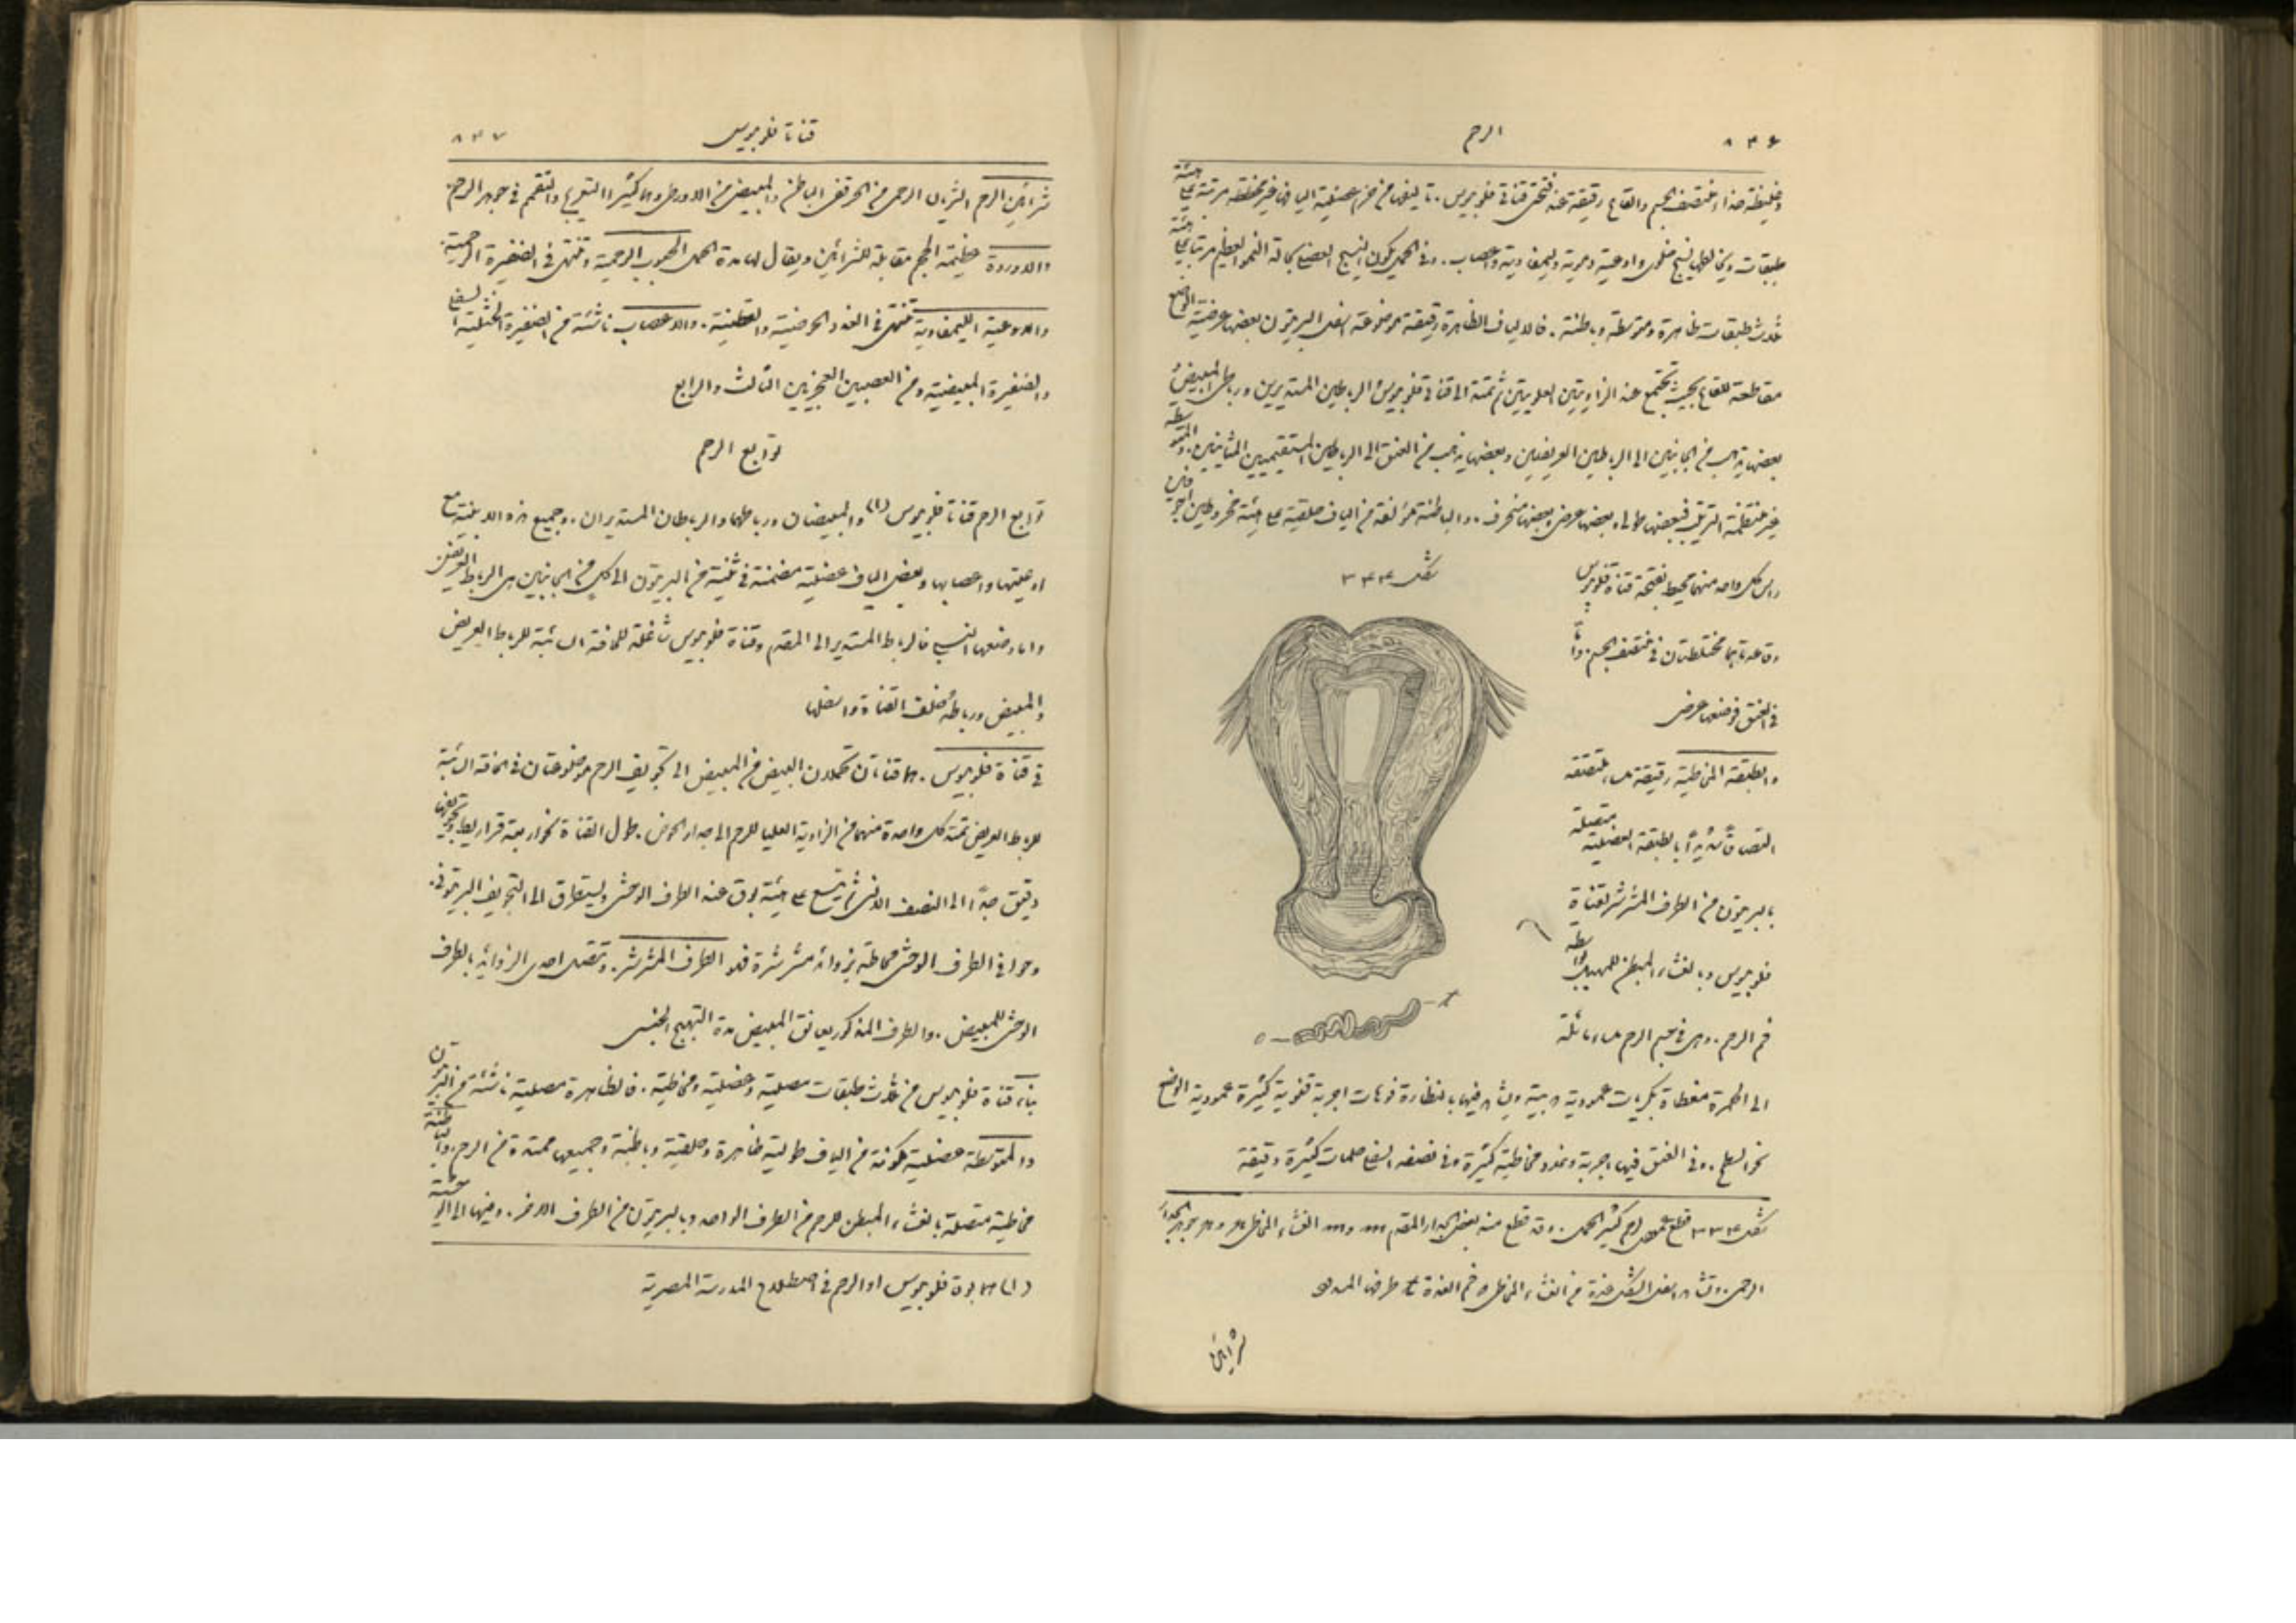 ٨٣٦
الرحم
وغليظة حذاء منتصف الجسم والقاع رقيقة عند فتحتي قناتي فلوبيوس. تاليفها من حزم عضلية اليافها غير مخططة مرتبة على هيئة
طبقات ويخالطها نسيج خلوي واوعية دموية وليمفاوية واعصاب. وفي الحمل يكون النسيج العضلي بحالة النمو العظيم مرتبا على هيئة
ثلاث طبقات ظاهرة ومتوسطة وباطنة. فالالياف الظاهرة رقيقة موضوعة اسفل البريتون بعضها عرضية الوضع
مقاطعة للقاع بحيث تجتمع عند الزاويتين العلويتين ثم تمتد الى قناتي فلوبيوس والرباطين المستديرين ورباطي المبيضين
بعضها يذهب من الجانبين الى الرباطين العريضين وبعضها يذهب من العنق الى الرباطين المستقيميين المثانيين. والمتوسطة
غير منتظمة الترتيب فبعضها طولي وبعضها عرضي وبعضها منحرف. والباطنة مؤلفة من الياف حلقية على هيئة مخروطين اجوفين
شكل ٣٤٤
راس كل واحد منهما محيط بفتحة قناة فلوبيوس
وقاعدتاهما مختلطتان في منتصف الجسم. واما
في العنق فوضعها عرضي
والطبقة المخاطية رقيقة ملساء ملتصقة
التصاقًا شديدًا بالطبقة العضلية متصلة
بالبريتون من الطرف المشرشر لقناة
فلوبيوس وبالغشاء المبطن للمهبل بواسطة
فم الرحم. وهي في جسم الرحم ملساء مائلة
t
o
الى الحمرة مغطاة بكريات عمودية هدبية ويشاهد فيها بالنظارة فوهات اجربة قنوية كثيرة عمودية الوضع
نحو السطح. وفي العنق فيها اجربة وغدد مخاطية كثيرة وفي نصفه السفلي حلمات كثيرة دقيقة
شكل ٣٤٤ قطع عمودي لرحم كثير الحمل. وقد قطع منه بعض الجدار المقدم m و m الغشاء المخاطي
الرحمي. وتشاهد اسفل الشكل غدة من الغشاء المخاطي o فم الغدة t طرفها المسدود
شرايين
٨٣٧
قناتا فلوبيوس
شرائين الرحم الشريان الرحمي من الحرقفي الباطن والمبيضي من الاورطي وهما كثيرا التعريج والتفمم في جوهر الرحم.
والاوردة عظيمة الحجم مقابلة للشرائين ويقال لها مدة الحمل الجيوب الرحمية وتنتهي في الضفيرة الرحمية.
والاوعية الليمفاوية تنتهي في الغدد الحوضية والقطنية. والاعصاب ناشئة من الضفيرة الخثلية السفلى
والضفيرة المبيضية ومن العصبين العجزيين الثالث والرابع
توابع الرحم
توابع الرحم قناتا فلوبيوس (١) والمبيضان ورباطهما والرباطان المستديران. وجميع هذه الابنية مع
اوعيتها واعصابها وبعض الياف عضلية متضمنة في ثنية من البريتون الى كل من الجانبين هي الرباط العريض.
واما وضعها النسبي فالرباط المستدير الى المقدم وقناة فلوبيوس شاغلة للحافة السائبة للرباط العريض
والمبيض ورباطه خلف القناة واسفلها
في قناة فلوبيوس. هما قناتان تحملان البيض من المبيض الى تجويف الرحم موضوعتان في الحافة السائبة
للرباط العريض تمتد كل واحدة منهما من الزاوية العليا للرحم الى جدار الحوض. طول القناة نحو اربعة قراريط وتجويفها
دقيق جدًا الى النصف الانسي ثم يتسع على هيئة بوق عند الطرف الوحشي ويستطرق الى التجويف البريتوني.
وحوافي الطرف الوحشي محاطة بزوائد مشرشرة فله الطرف المشرشر. وتتصل احدى الزوائد بالطرف
الوحشي للمبيض. والطرف المذكور يعانق المبيض مدة التهيج الجنسي
بناء قناة فلوبيوس من ثلاث طبقات مصلية وعضلية ومخاطية. فالظاهرة مصلية ناشئة من البريتون
والمتوسطة عضلية مكونة من الياف طولية ظاهرة وحلقية وباطنة وجميعها ممتدة من الرحم. والباطنة
مخاطية متصلة بالغشاء المبطن للرحم من الطرف الواحد وبالبريتون من الطرف الاخر. وفيها
(١) هما بوقا فلوبيوس او الرحم في اصطلاح المدرسة المصرية